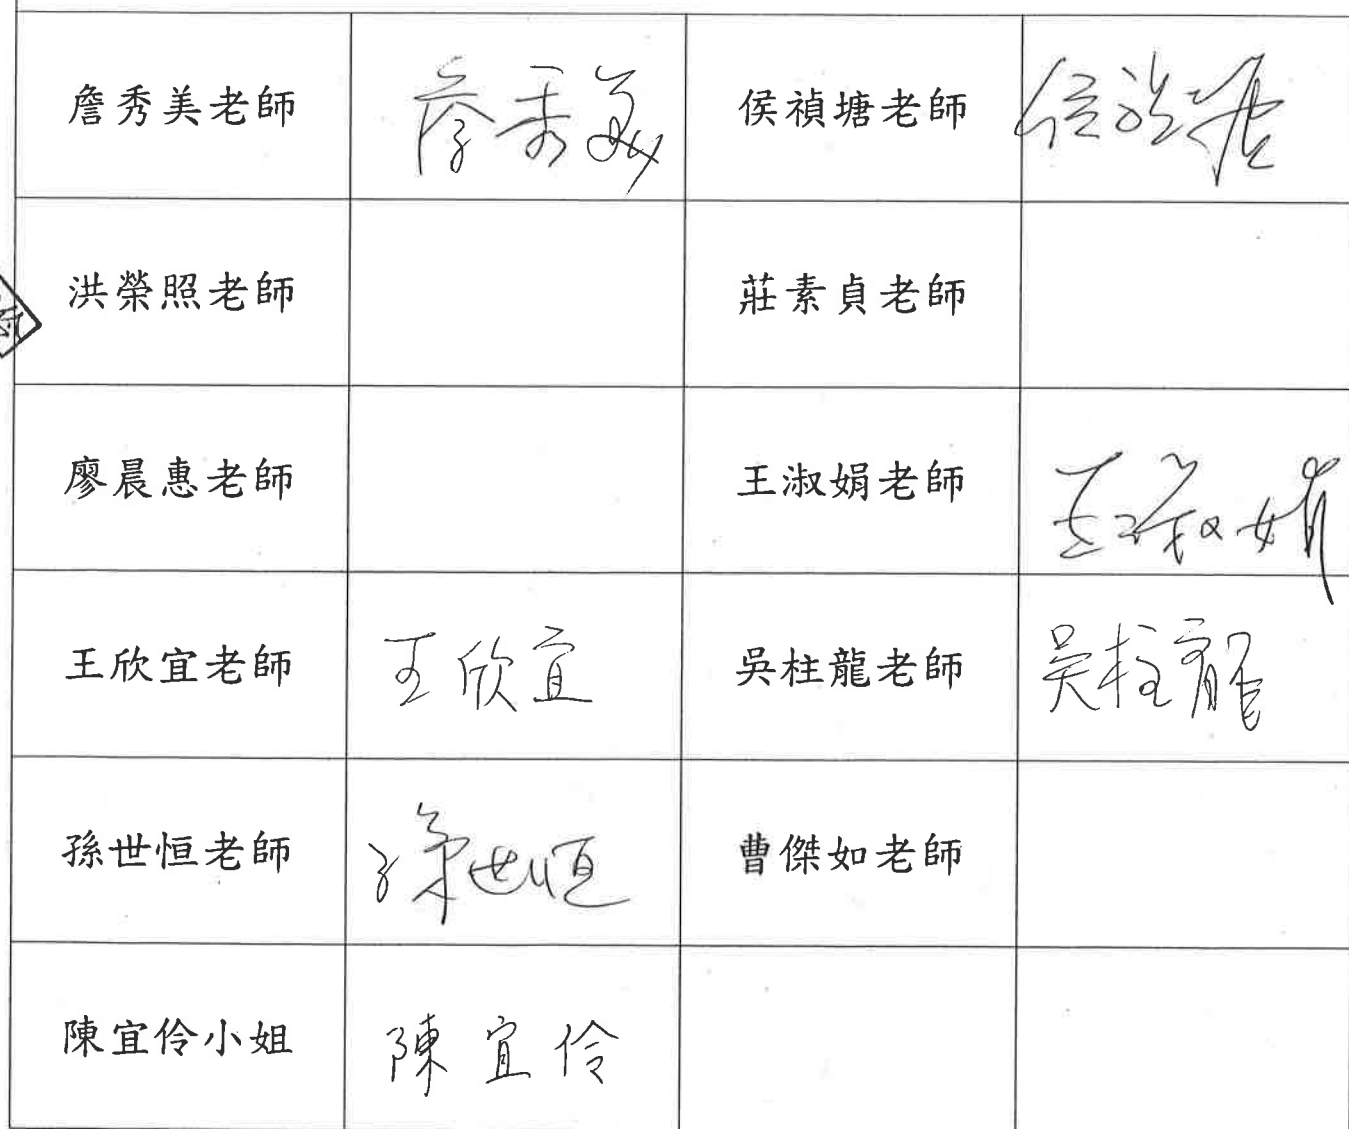 詹秀美老師 詹秀美 侯禎塘老師 侯禎塘
洪榮照老師 莊素貞老師
廖晨惠老師 王淑娟老師 王淑娟
王欣宜老師 王欣宜 吳柱龍老師 吳柱龍
孫世恒老師 孫世恒 曹傑如老師
陳宜伶小姐 陳宜伶